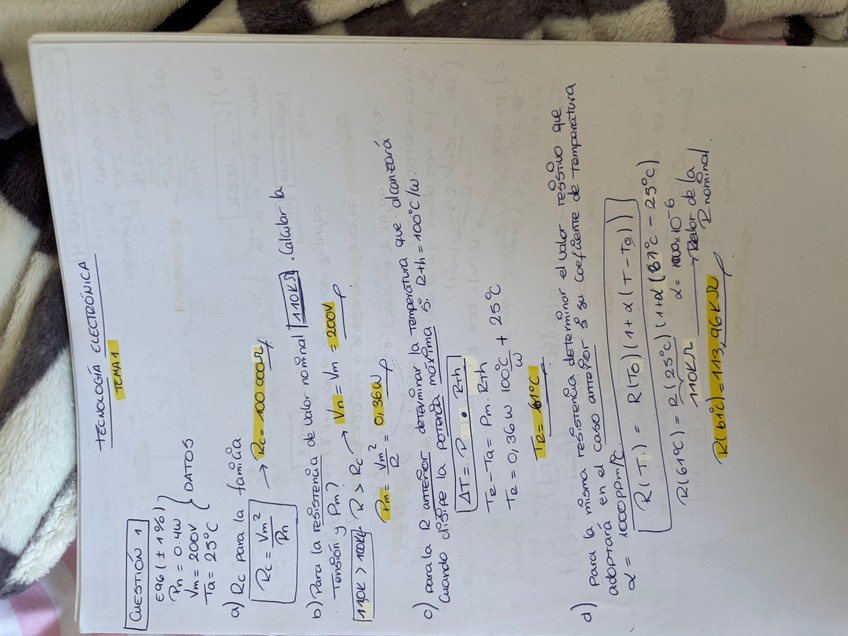 TECNOLOGÍA ELECTRÓNICA
TEMA 1
CUESTIÓN 1
E96 (± 1%)
Pn = 0.4W
Vm = 200V
Ta = 25°C
} DATOS
a) Rc para la familia
Rc = Vm² / Pn → Rc = 100 000Ω
b) Para la resistencia de valor nominal 110KΩ. Calcular la
Tensión y Pm?
110K > 100K R > Rc → Vn = Vm = 200V
Pm = Vm² / R = 0,36W
c) para la R anterior determinar la temperatura que alcanzará
cuando disipe la potencia máxima si Rth = 100°C/W.
ΔT = P · Rth
Te - Ta = Pm. Rth
Te = 0,36W 100°C/W + 25°C
Te = 61°C
d) para la misma resistencia determinar el valor resistivo que
adoptará en el caso anterior si su coeficiente de temperatura
α = 1000ppm/°C
R(T1) = R(T0)(1+α(T-T0))
R(61°C) = R(25°C)(1+α(61°C - 25°C)
110KΩ α = 1000x10-6
→ Valor de la
R nominal
R(61°) = 113,96KΩ